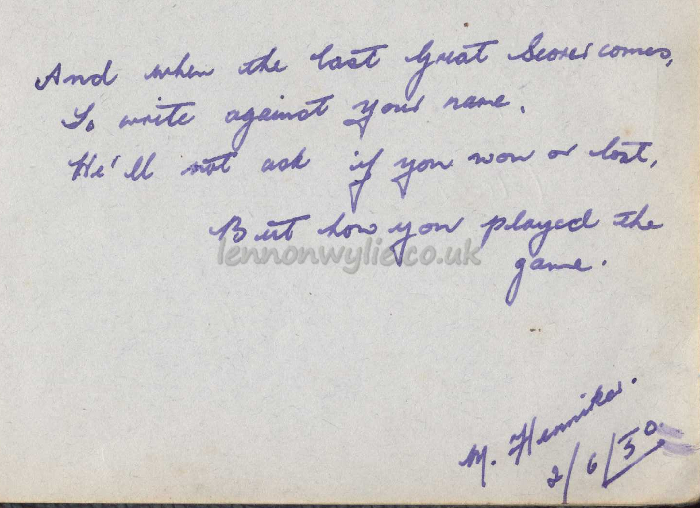 And when the last Great Scorer comes,
To write against your name.
He'll not ask if you won or lost,
But how you played the
lennonwylie.co.uk
game.
M. Henniker.
2/6/50